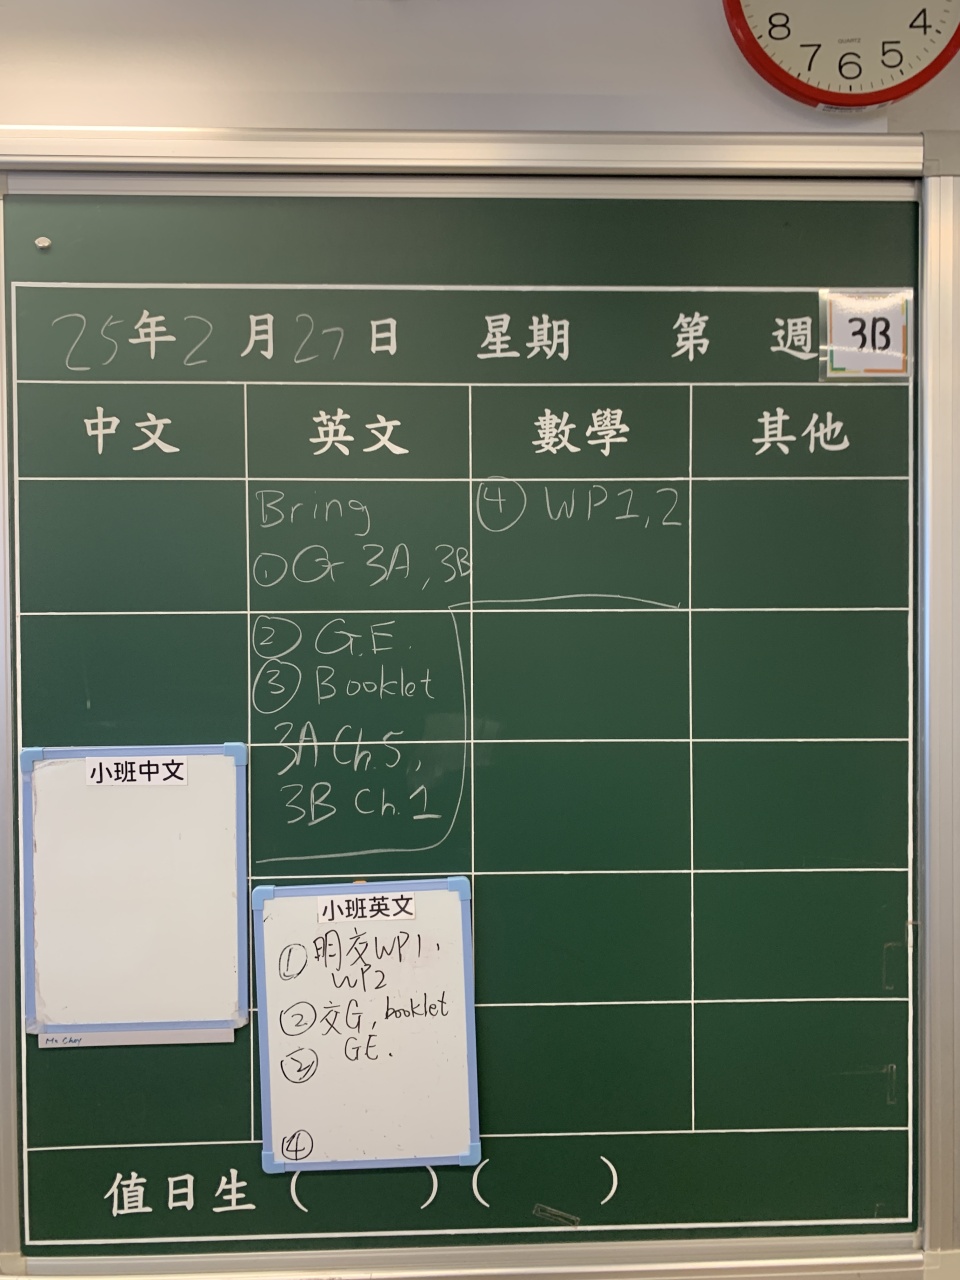 8 7 6 5 4
QUARTZ
25年2月27日 星期 第 週 3B
中文 英文 數學 其他
Bring
① G 3A, 3B
② G.E.
③ Booklet
3A Ch.5,
3B Ch.1
④ WP1,2
小班中文
Ms Choy
小班英文
① 明交WP1,
WP2
② 交G, booklet
GE.
③
④
值日生 ( ) ( )